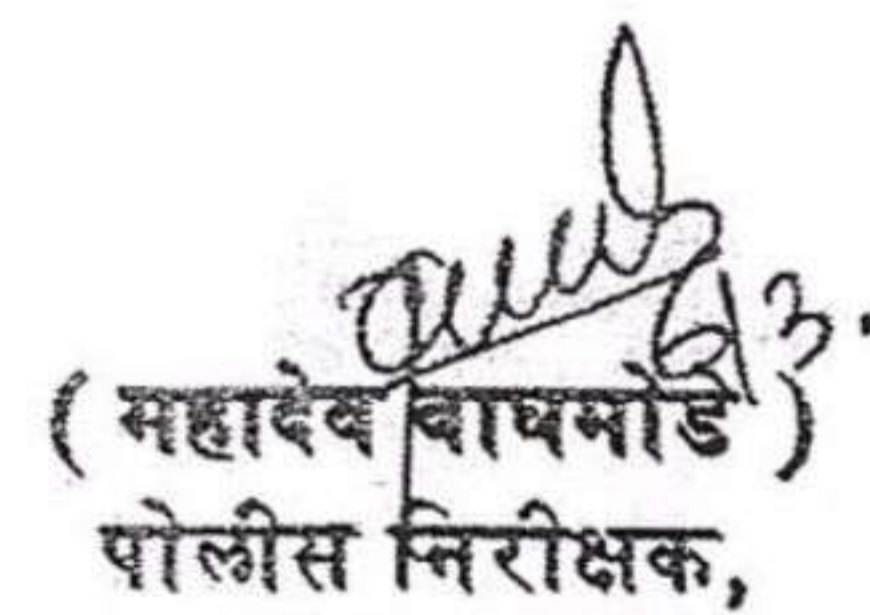 ( महादेव वाघमोडे )
पोलीस निरीक्षक,